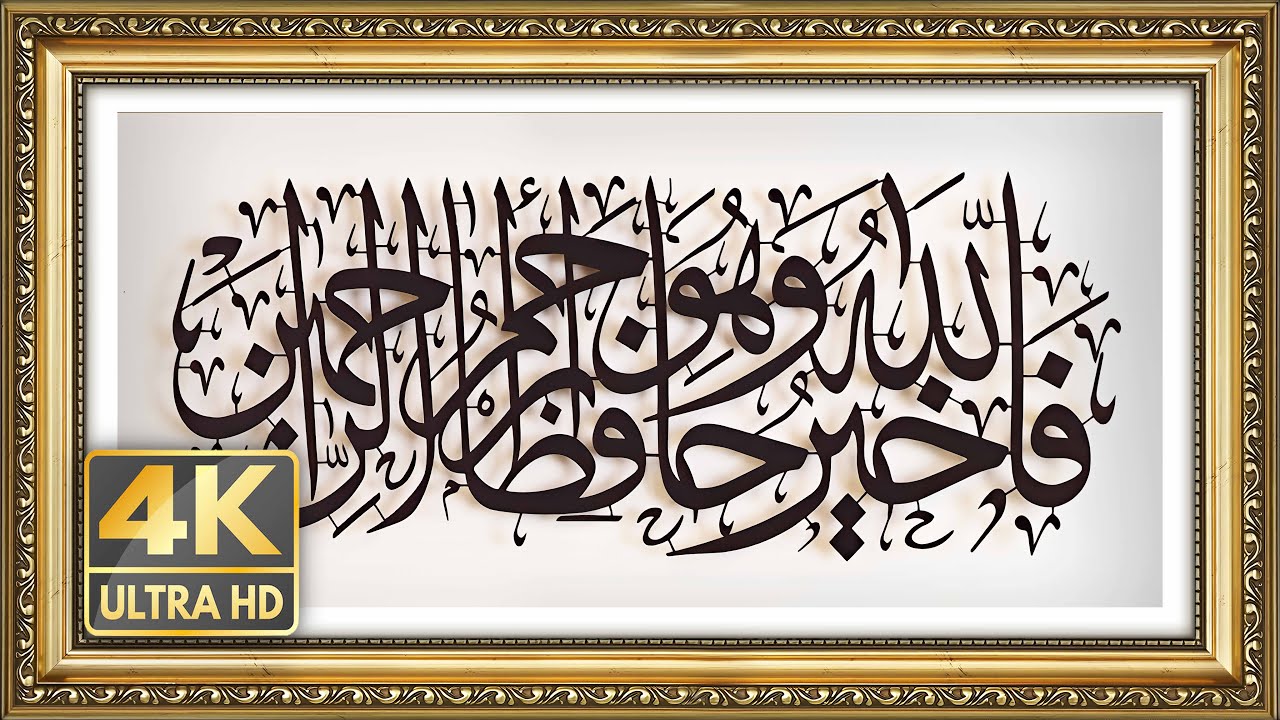 فَاللّٰهُ خَيْرٌ حَافِظًا وَهُوَ أَرْحَمُ الرَّاحِمِينَ
4K
ULTRA HD